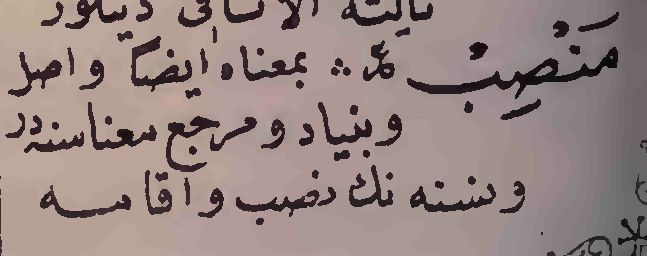 ثالثة الاثافى ديلور
مَنْصِبْ ع :: بمعناه ايضا واصل
وبنياد ومرجع معناسنه در
ونسنه نك نصب واقامه